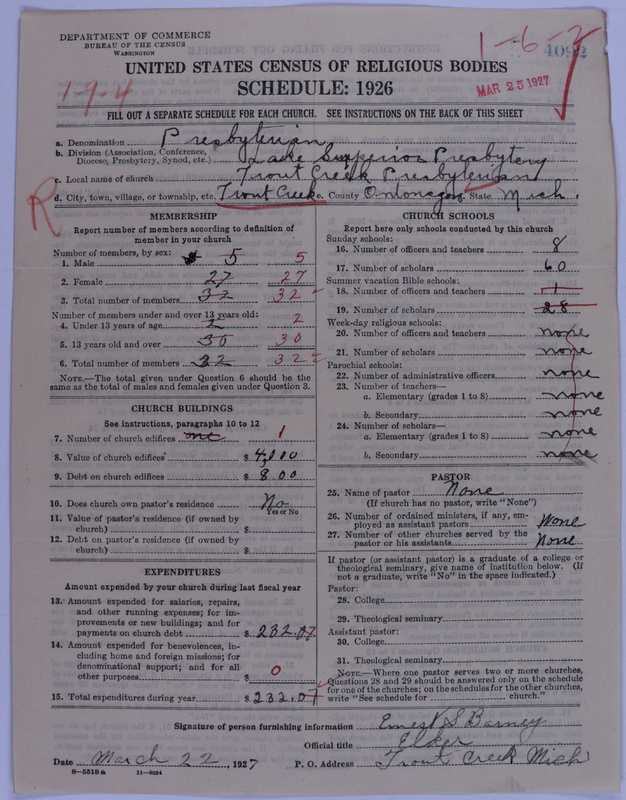 DEPARTMENT OF COMMERCE
BUREAU OF THE CENSUS
WASHINGTON
1-6-2
4092
MAR 25 1927
UNITED STATES CENSUS OF RELIGIOUS BODIES
SCHEDULE: 1926
1-1-4
FILL OUT A SEPARATE SCHEDULE FOR EACH CHURCH. SEE INSTRUCTIONS ON THE BACK OF THIS SHEET
a. Denomination Presbyterian
b. Division (Association, Conference, Diocese, Presbytery, Synod, etc.) Lake Superior Presbytery
c. Local name of church Trout Creek Presbyterian
d. City, town, village, or township, etc. Trout Creek e. County Ontonagon State Mich.
R
MEMBERSHIP
Report number of members according to definition of
member in your church
Number of members, by sex:
1. Male 5 5
2. Female 27 27
3. Total number of members 32 32
Number of members under and over 13 years old:
4. Under 13 years of age 2 2
5. 13 years old and over 30 30
6. Total number of members 32 32
NOTE.—The total given under Question 6 should be
same as the total of males and females given under Question 3.
CHURCH BUILDINGS
See instructions, paragraphs 10 to 12
7. Number of church edifices one 1
8. Value of church edifices $ 4,000
9. Debt on church edifices $ 8.00
10. Does church own pastor's residence No
Yes or No
11. Value of pastor's residence (if owned by
church) $
12. Debt on pastor's residence (if owned by
church) $
EXPENDITURES
Amount expended by your church during last fiscal year
13. Amount expended for salaries, repairs,
and other running expenses; for im-
provements or new buildings; and for
payments on church debt $ 232.07
14. Amount expended for benevolences, in-
cluding home and foreign missions; for
denominational support; and for all
other purposes $ 0
15. Total expenditures during year $ 232.07
CHURCH SCHOOLS
Report here only schools conducted by this church
Sunday schools:
16. Number of officers and teachers 8
17. Number of scholars 60
Summer vacation Bible schools:
18. Number of officers and teachers 1
19. Number of scholars 28
Week-day religious schools:
20. Number of officers and teachers none
21. Number of scholars none
Parochial schools:
22. Number of administrative officers none
23. Number of teachers—
a. Elementary (grades 1 to 8) none
b. Secondary none
24. Number of scholars—
a. Elementary (grades 1 to 8) none
b. Secondary none
PASTOR
25. Name of pastor None
(If church has no pastor, write "None")
26. Number of ordained ministers, if any, em-
ployed as assistant pastors None
27. Number of other churches served by the
pastor or his assistants None
If pastor (or assistant pastor) is a graduate of a college or
theological seminary, give name of institution below. (If
not a graduate, write "No" in the space indicated.)
Pastor:
28. College
29. Theological seminary
Assistant pastor:
30. College
31. Theological seminary
NOTE.—Where one pastor serves two or more churches,
Questions 28 and 29 should be answered only on the schedule
for one of the churches; on the schedules for the other churches,
write "See schedule for church."
Signature of person furnishing information Ernest S. Barney
Official title Elder
Date March 22, 1927 P. O. Address Trout Creek Mich
8—5518 a 11—9064